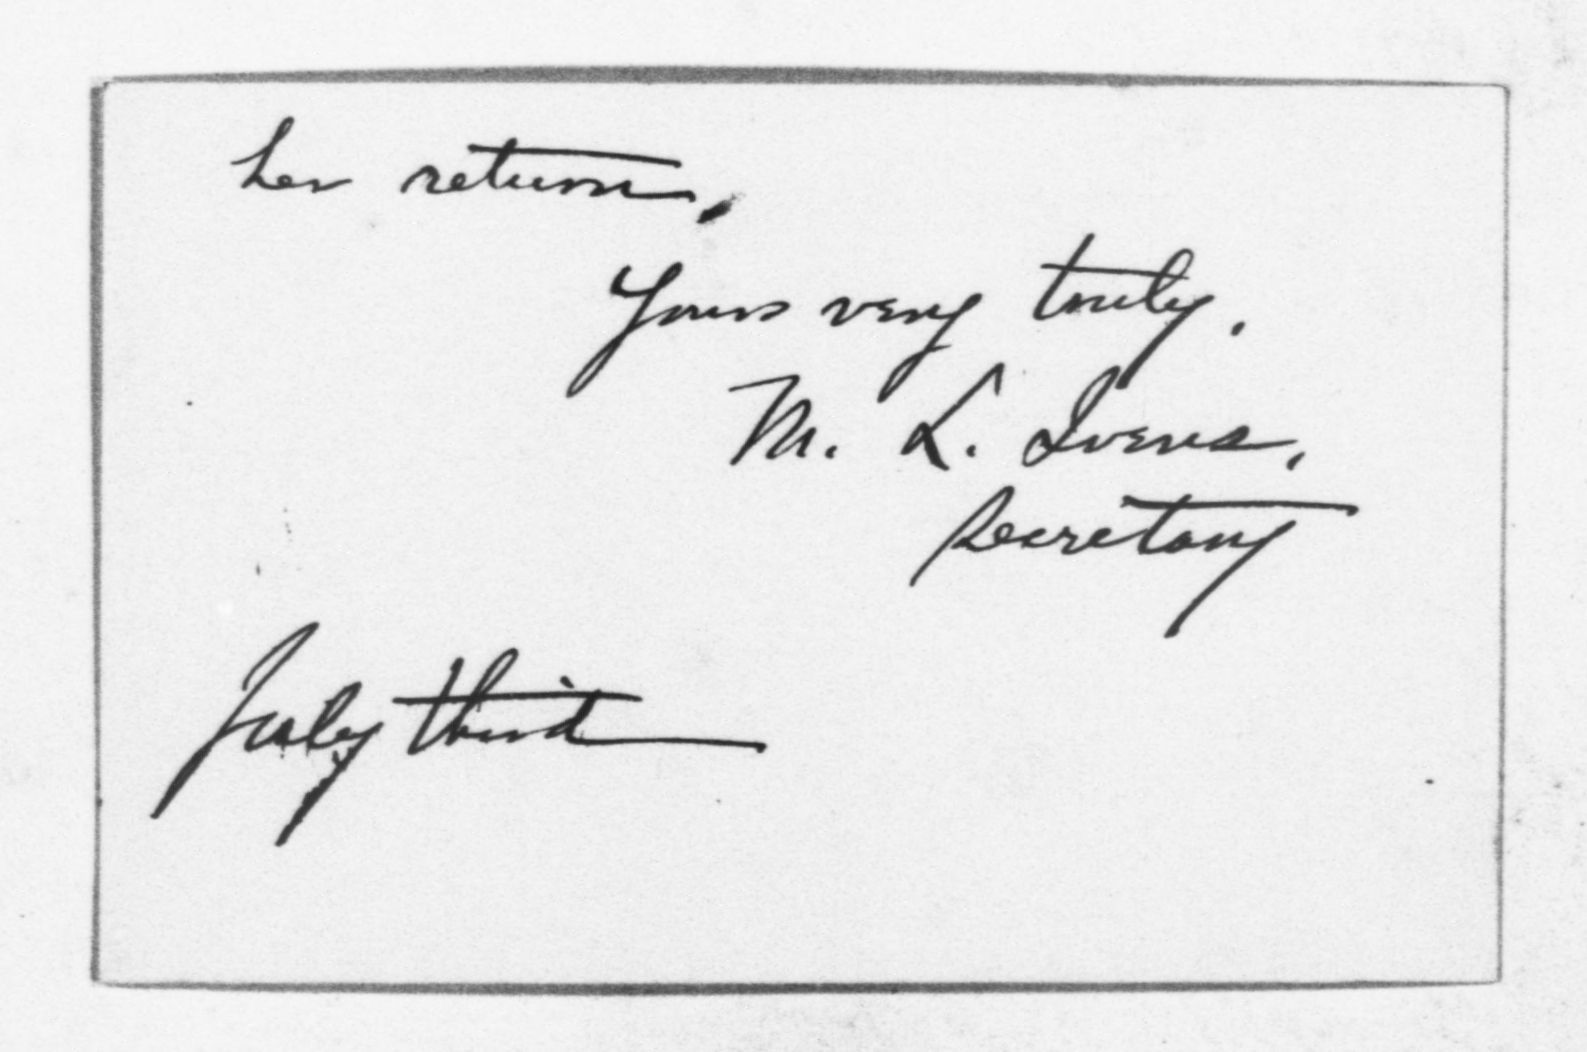 her return,
Yours very truly,
M. L. Ivens,
Secretary
July third